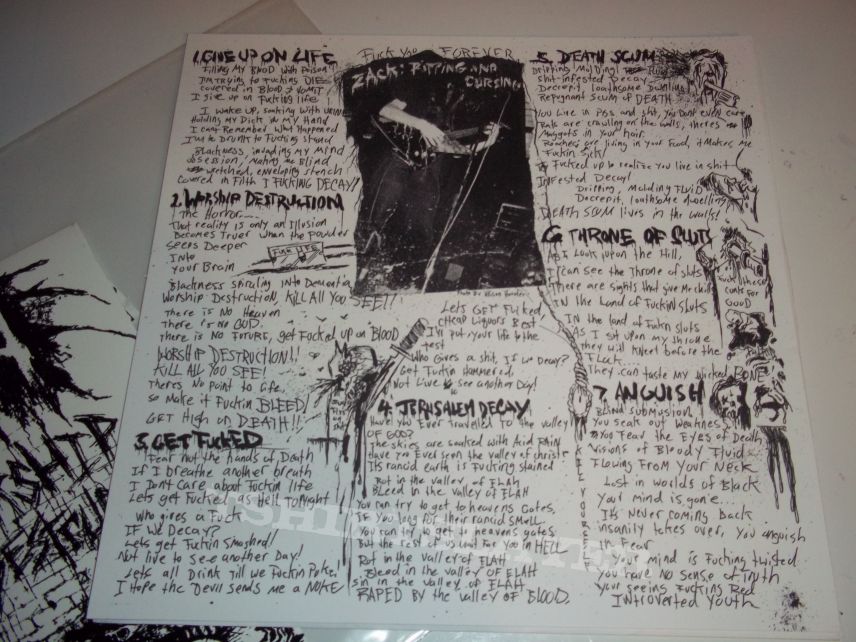 FUCK YOU FOREVER
ZACK: RIPPING AND
CURSING
1. GIVE UP ON LIFE
Filling My Blood with Poison
I'm trying to Fucking DIE
covered in Blood & VOMIT
I give up on Fucking life
I wake up, soaking with urine
Holding my Dick in my Hand
I cant Remember what Happened
I'm to Drunk to Fucking stand
Blackness, invading my Mind
obsession, Making me Blind
wretched, enveloping stench
covered in Filth I FUCKING DECAY!
2. WORSHIP DESTRUCTION
The Horror....
That reality is only an Illusion
Becomes Truer when the Powder
Seeps Deeper
Into
your Brain
Fuck LIFE
Blackness spiraling Into Dementia
Worship Destruction, KILL ALL YOU SEE!!
There is No Heaven
There is No GOD.
There is No FUTURE, get Fucked up on BLOOD
WORSHIP DESTRUCTION!!
KILL ALL YOU SEE!
Theres No Point to Life,
So Make it Fuckin BLEED!
GET High on DEATH!!
3. GET FUCKED
Fear Not the hands of Death
If I breathe another breath
I Dont Care about Fuckin life
Lets get Fucked as Hell Tonight
Who gives a Fuck
IF We Decay?
Lets get Fuckin Smashed!
Not live to See another Day!
Lets all Drink Till we Fuckin Puke!
I Hope the Devil sends me a NUKE
Lets GET Fucked
cheap Liquors Best
I'll put your life to the
test
Who Gives a shit, If we Decay?
Get Fuckin Hammered
Not Live to see another Day!
4. JERUSALEM DECAY
Have you Ever Travelled To the valley
OF GOD?
The skies are soaked with Acid Rain
Have you Ever seen the valley of christ
Its rancid earth is Fucking stained
Rot in the valley of ELAH
Bleed in the Valley OF ELAH
You can try to get to heavens Gates,
IF You long For their rancid smell
You can try to get to heavens gates
But the rest of us wait For you in HELL
Rot in the valley of ELAH
Bleed in the valley OF ELAH
sin in the valley of ELAH
RAPED by the valley of BLOOD.
5. DEATH SCUM
Dripping Molding Fluid
Shit-infested Decay
Decrepit, loathsome Dwelling
Repugnant Scum of DEATH
You Live in Piss and shit, you Dont even care
Rats are crawling on the walls, theres
Maggots in your hair
Roaches are living in your Food, it Makes me
Fuckin Sick!
Fucked up to realize you Live in shit
Infested Decay!
Dripping, Molding FLUID
Decrepit, loathsome dwelling
DEATH SCUM lives in the walls!
6. THRONE OF SLUTS
As I Look upon the Hill,
I can see the Throne of sluts
There are sights that give me chills
IN the Land of Fuckin Sluts
IN the land of Fuckin Sluts
As I sit upon my throne
they will kneel before the
Fuck....
They can taste my wicked BONE
Fuck these
cunts For
GOOD
7. ANGUISH
Blind submission
You seak out Weakness
You Fear the Eyes of Death
Visions of Bloody Fluid
Flowing From Your Neck
Lost in Worlds of Black
Your mind is gone...
It's Never coming Back
insanity takes over, you anguish
in Fear
Your mind is Fucking twisted
You have No sense of Truth
Your seeing Fucking Red
Introverted Youth
KILL YOURSELF